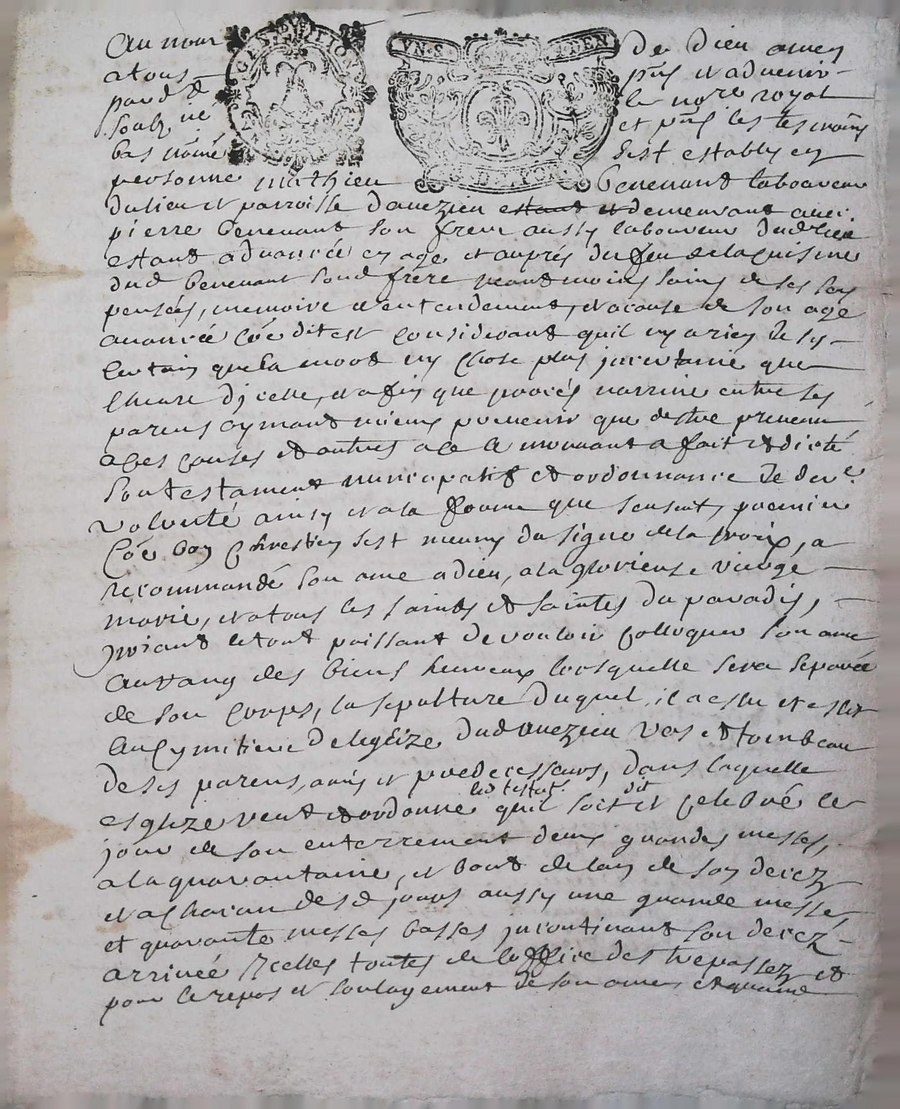 Au nom de Dieu amen
a tous pnts et advenir
pard le no.re royal
soubz.né et pnts les tesmoins
bas només s'est estably en
personne mathieu benenant laboureur
du lieu et parroisse d'avezieu estant et demeurant avec
pierre benenant son frere aussy laboureur dud lieu
estant advancée en age et auprés du feu de la cuisine
dud benenant sond frére neantmoins sains de ses sens
pensées, memoire et entendement, et acause de son age
avancée Coe dit est considerant quil ny a rien de sy
certain que la mort ny chose plus incertaine que
lheure dicelle, et afin que procés narrive entre ses
parens aymant mieux prevenir que destre prevenu
a ces causes et autres a ce le mouvant a fait et dicté
son testament nuncupatif et ordonnance de dere
volonté ainsy et a la forme que sensuit, premier
Coe bon Chrestien sest muny du signe de la Croix, a
recommandé son ame a dieu, a la glorieuse vierge
marie, et a tous les saints et saintes du paradis,
priant le tout puissant de vouloir colloquer son ame
au rang des biens heureux lorsquelle sera séparée
de son corps, la sepulture duquel, il a eslu et eslit
au Cymitiere de leglize dud avezieu vas et tombeau
de ses parens, amis et predecesseurs, dans laquelle
esglize veut et ordonne led testat. quil soit dit et celebré le
jour de son enterrement deux grandes messes,
a la quarantaine, et bout de lan de son decez
et a chacun desd jours aussy une grande messe,
et quarante messes basses incontinant son decez
arrivée Icelles toutes de loffice des trepassez et
pour le repos et soulagement de son ame et quand
GAS DITION
UN S
TEN
G. D. LYON